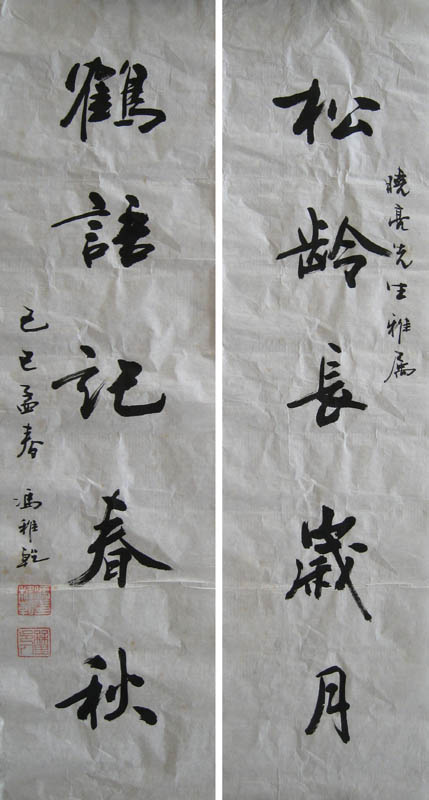 曉亮先生雅屬
松龄長歲月
鶴語記春秋
己巳孟春 馮雅乾